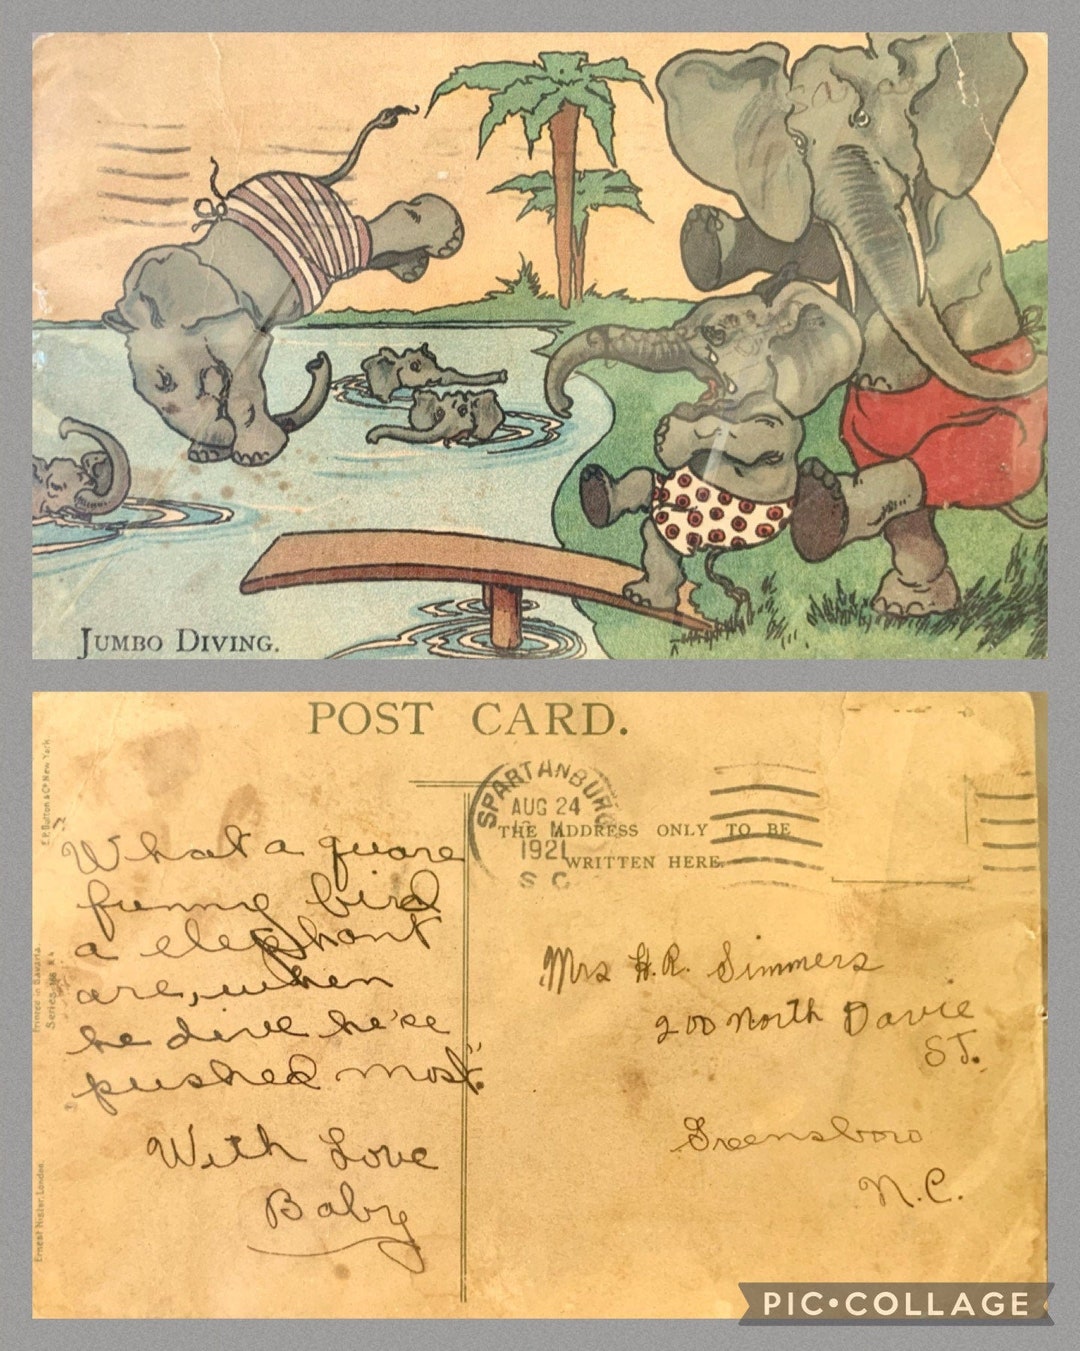 JUMBO DIVING.
POST CARD.
E.P. Dutton & Co New York
Printed in Bavaria
Ernest Nister, London
"What a quare
funny bird
a elephant
are, when
he dive he'se
pushed most."
With Love
Baby
SPARTANBURG
AUG 24
1921
S C
THE ADDRESS ONLY TO BE
WRITTEN HERE.
Mrs H.R. Simmers
200 North Davie
ST.
Greensboro
N.C.
PIC•COLLAGE